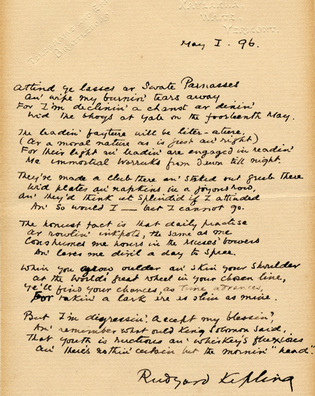 May 1. 96.
Attind ye lasses av Swate Parnasses
An' wipe my burnin' tears away
For I'm declinin' a chanst av dinin'
Wid the bhoys at Yale on the fourteenth May.
The leadin' fayture will be liter-ature,
(Av a moral nature as is just an' right)
For their light an' leadin' are engaged in readin'
Me immortial Worruks from dawn till night.
They've made a club there an' staked out grub there
Wid plates an' napkins in a joyous row,
An' they'd think ut splindid if I attinded
An' so would I — but I cannot go.
The honust fact is that daily practise
Av rowlin' inkpots, the same as me
Conshumes me hours in the Muses' bowers
An' laves me divil a day to spree.
Whin you grow oulder an' skin your shoulder
At the World's great wheel in your chosen line,
Ye'll find your chances, as time advances,
For takin' a lark are as slim as mine.
But I'm digressin'. Accept my blessin',
An' remember what ould King Solomon said,
That youth is ructious an' whiskey's fluxious
An' there's nothin' certain but the mornin' "head".
Rudyard Kipling